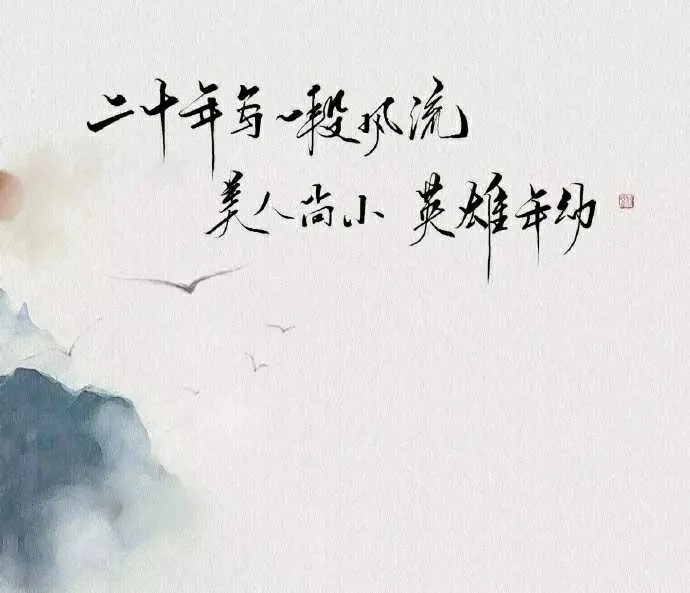 二十年写一段风流
美人尚小 英雄年幼